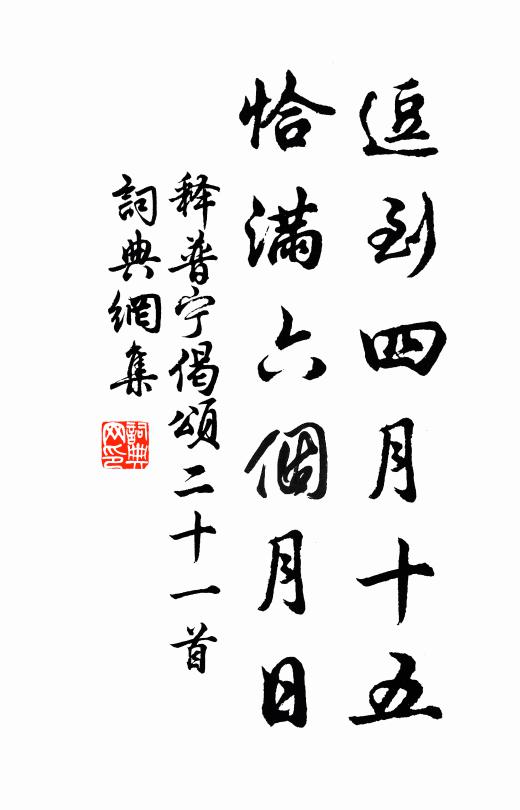 逗到四月十五
恰滿六個月日
释普宁偈頌二十一首
詞典網集
詞典网印